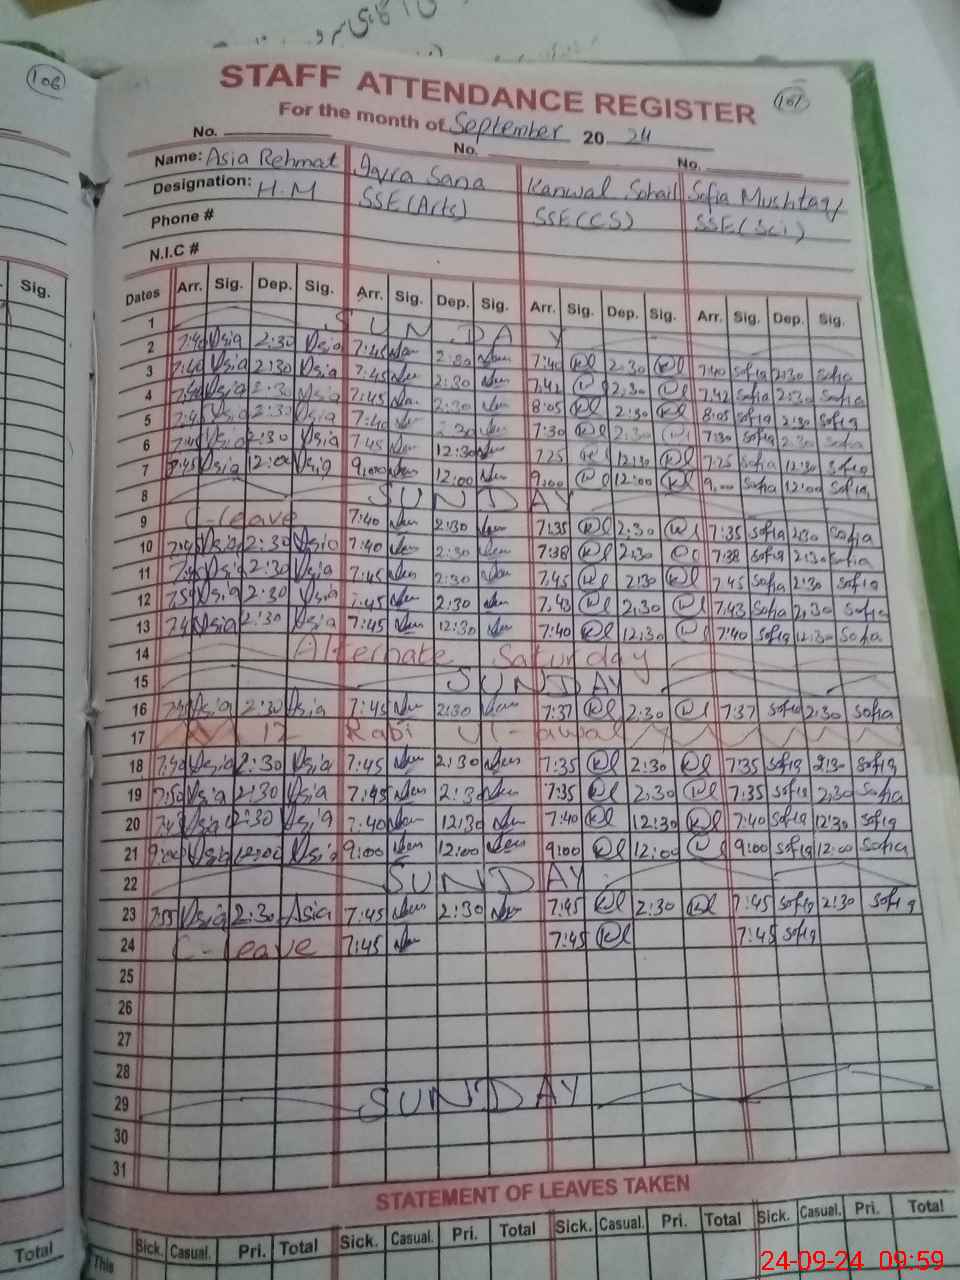 106
STAFF ATTENDANCE REGISTER
107
For the month of September 20 24
No. No. No.
Name: Asia Rehmat Iqra Sana Kanwal Sohail Sofia Mushtaq
Designation: H.M SSE(Arts) SSE(CS) SSE(Sci)
Phone #
N.I.C #
Sig.
Dates Arr. Sig. Dep. Sig. Arr. Sig. Dep. Sig. Arr. Sig. Dep. Sig. Arr. Sig. Dep. Sig.
1 SUNDAY
2 7:40 Asia 2:30 Asia 7:45 2:30 7:40 2:30 7:40 Sofia 2:30 Sofia
3 7:40 Asia 2:30 Asia 7:45 2:30 7:42 2:30 7:42 Sofia 2:30 Sofia
4 Asia 2:30 Asia 7:45 2:30 8:05 2:30 8:05 Sofia 2:30 Sofia
5 7:45 Asia 2:30 Asia 7:40 2:30 7:30 2:30 7:30 Sofia 2:30 Sofia
6 Asia 2:30 Asia 7:45 12:30 7:25 12:30 7:25 Sofia 12:30 Sofia
7 8:45 Asia 12:00 Asia 9:00 12:00 9:00 12:00 9:00 Sofia 12:00 Sofia
8 SUNDAY
9 C-leave 7:40 2:30 7:35 2:30 7:35 Sofia 2:30 Sofia
10 7:45 Asia 2:30 Asia 7:40 2:30 7:38 2:30 7:38 Sofia 2:30 Sofia
11 7:45 Asia 2:30 Asia 7:45 2:30 7:45 2:30 7:45 Sofia 2:30 Sofia
12 Asia 2:30 Asia 7:45 2:30 7:43 2:30 7:43 Sofia 2:30 Sofia
13 Asia 2:30 Asia 7:45 12:30 7:40 12:30 7:40 Sofia 12:30 Sofia
14 Alternate Saturday
15 SUNDAY
16 Asia 2:30 Asia 7:45 2:30 7:37 2:30 7:37 Sofia 2:30 Sofia
17 12 Rabi Ul-awal
18 7:40 Asia 2:30 Asia 7:45 2:30 7:35 2:30 7:35 Sofia 2:30 Sofia
19 7:50 Asia 2:30 Asia 7:45 2:30 7:35 2:30 7:35 Sofia 2:30 Sofia
20 7:43 Asia 2:30 Asia 7:40 12:30 7:40 12:30 7:40 Sofia 12:30 Sofia
21 9:00 Asia 12:00 Asia 9:00 12:00 9:00 12:00 9:00 Sofia 12:00 Sofia
22 SUNDAY
23 7:55 Asia 2:30 Asia 7:45 2:30 7:45 2:30 7:45 Sofia 2:30 Sofia
24 C-leave 7:45 7:45 7:45 Sofia
25
26
27
28
29 SUNDAY
30
31
STATEMENT OF LEAVES TAKEN
Total
This Sick. Casual. Pri. Total Sick. Casual. Pri. Total Sick. Casual. Pri. Total Sick. Casual. Pri. Total
24-09-24 09:59